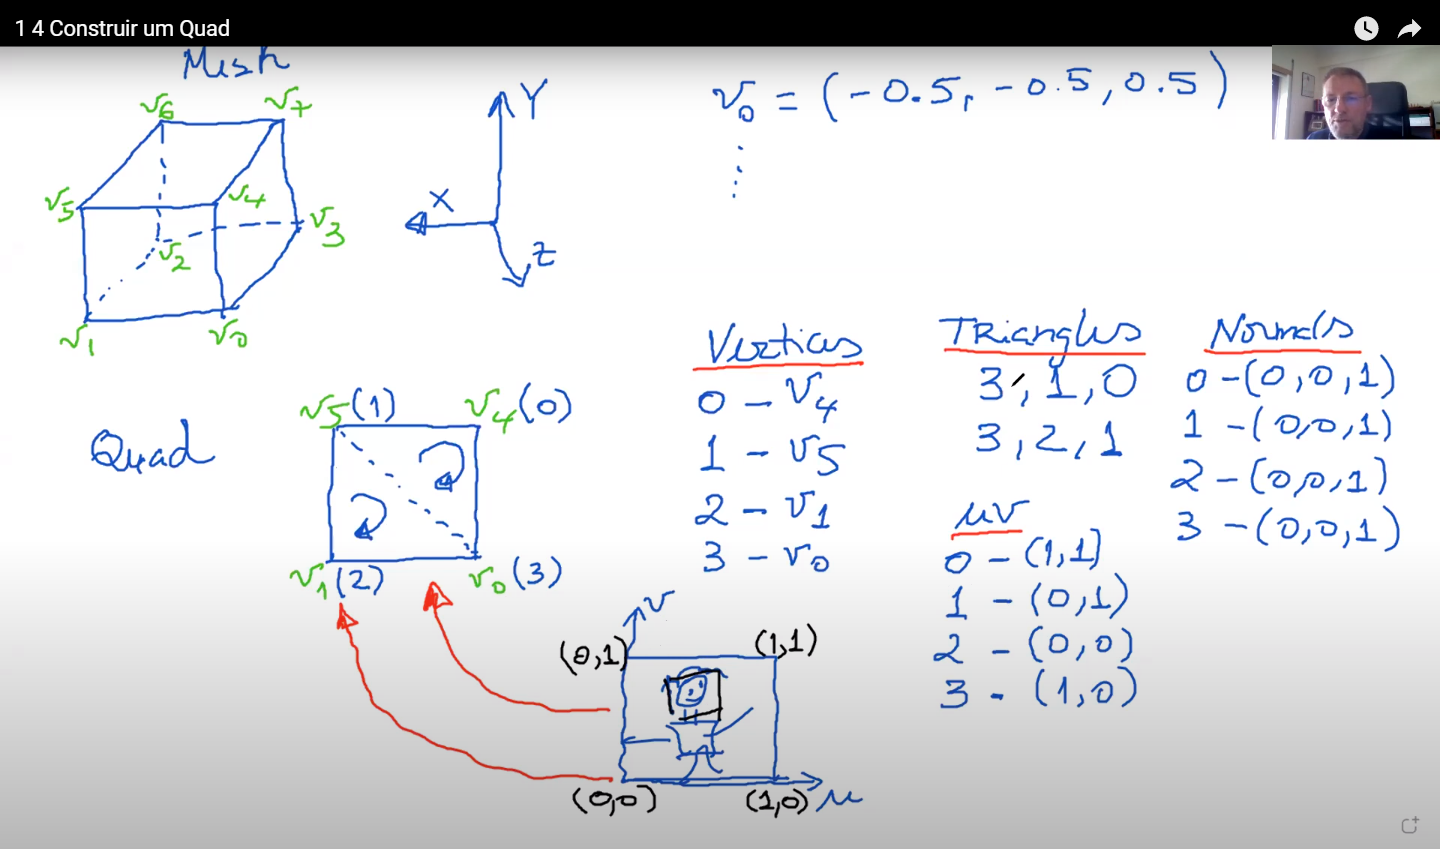 1 4 Construir um Quad
Mesh
v6 v7
v5 v4
v3
v2
v1 v0
Y
X
Z
v0 = (-0.5, -0.5, 0.5)
Quad
v5 (1) v4 (0)
v1 (2) v0 (3)
Vertices
0 - v4
1 - v5
2 - v1
3 - v0
Triangles
3, 1, 0
3, 2, 1
Normals
0 - (0, 0, 1)
1 - (0, 0, 1)
2 - (0, 0, 1)
3 - (0, 0, 1)
uv
0 - (1, 1)
1 - (0, 1)
2 - (0, 0)
3 - (1, 0)
v
(0,1) (1,1)
(0,0) (1,0) u